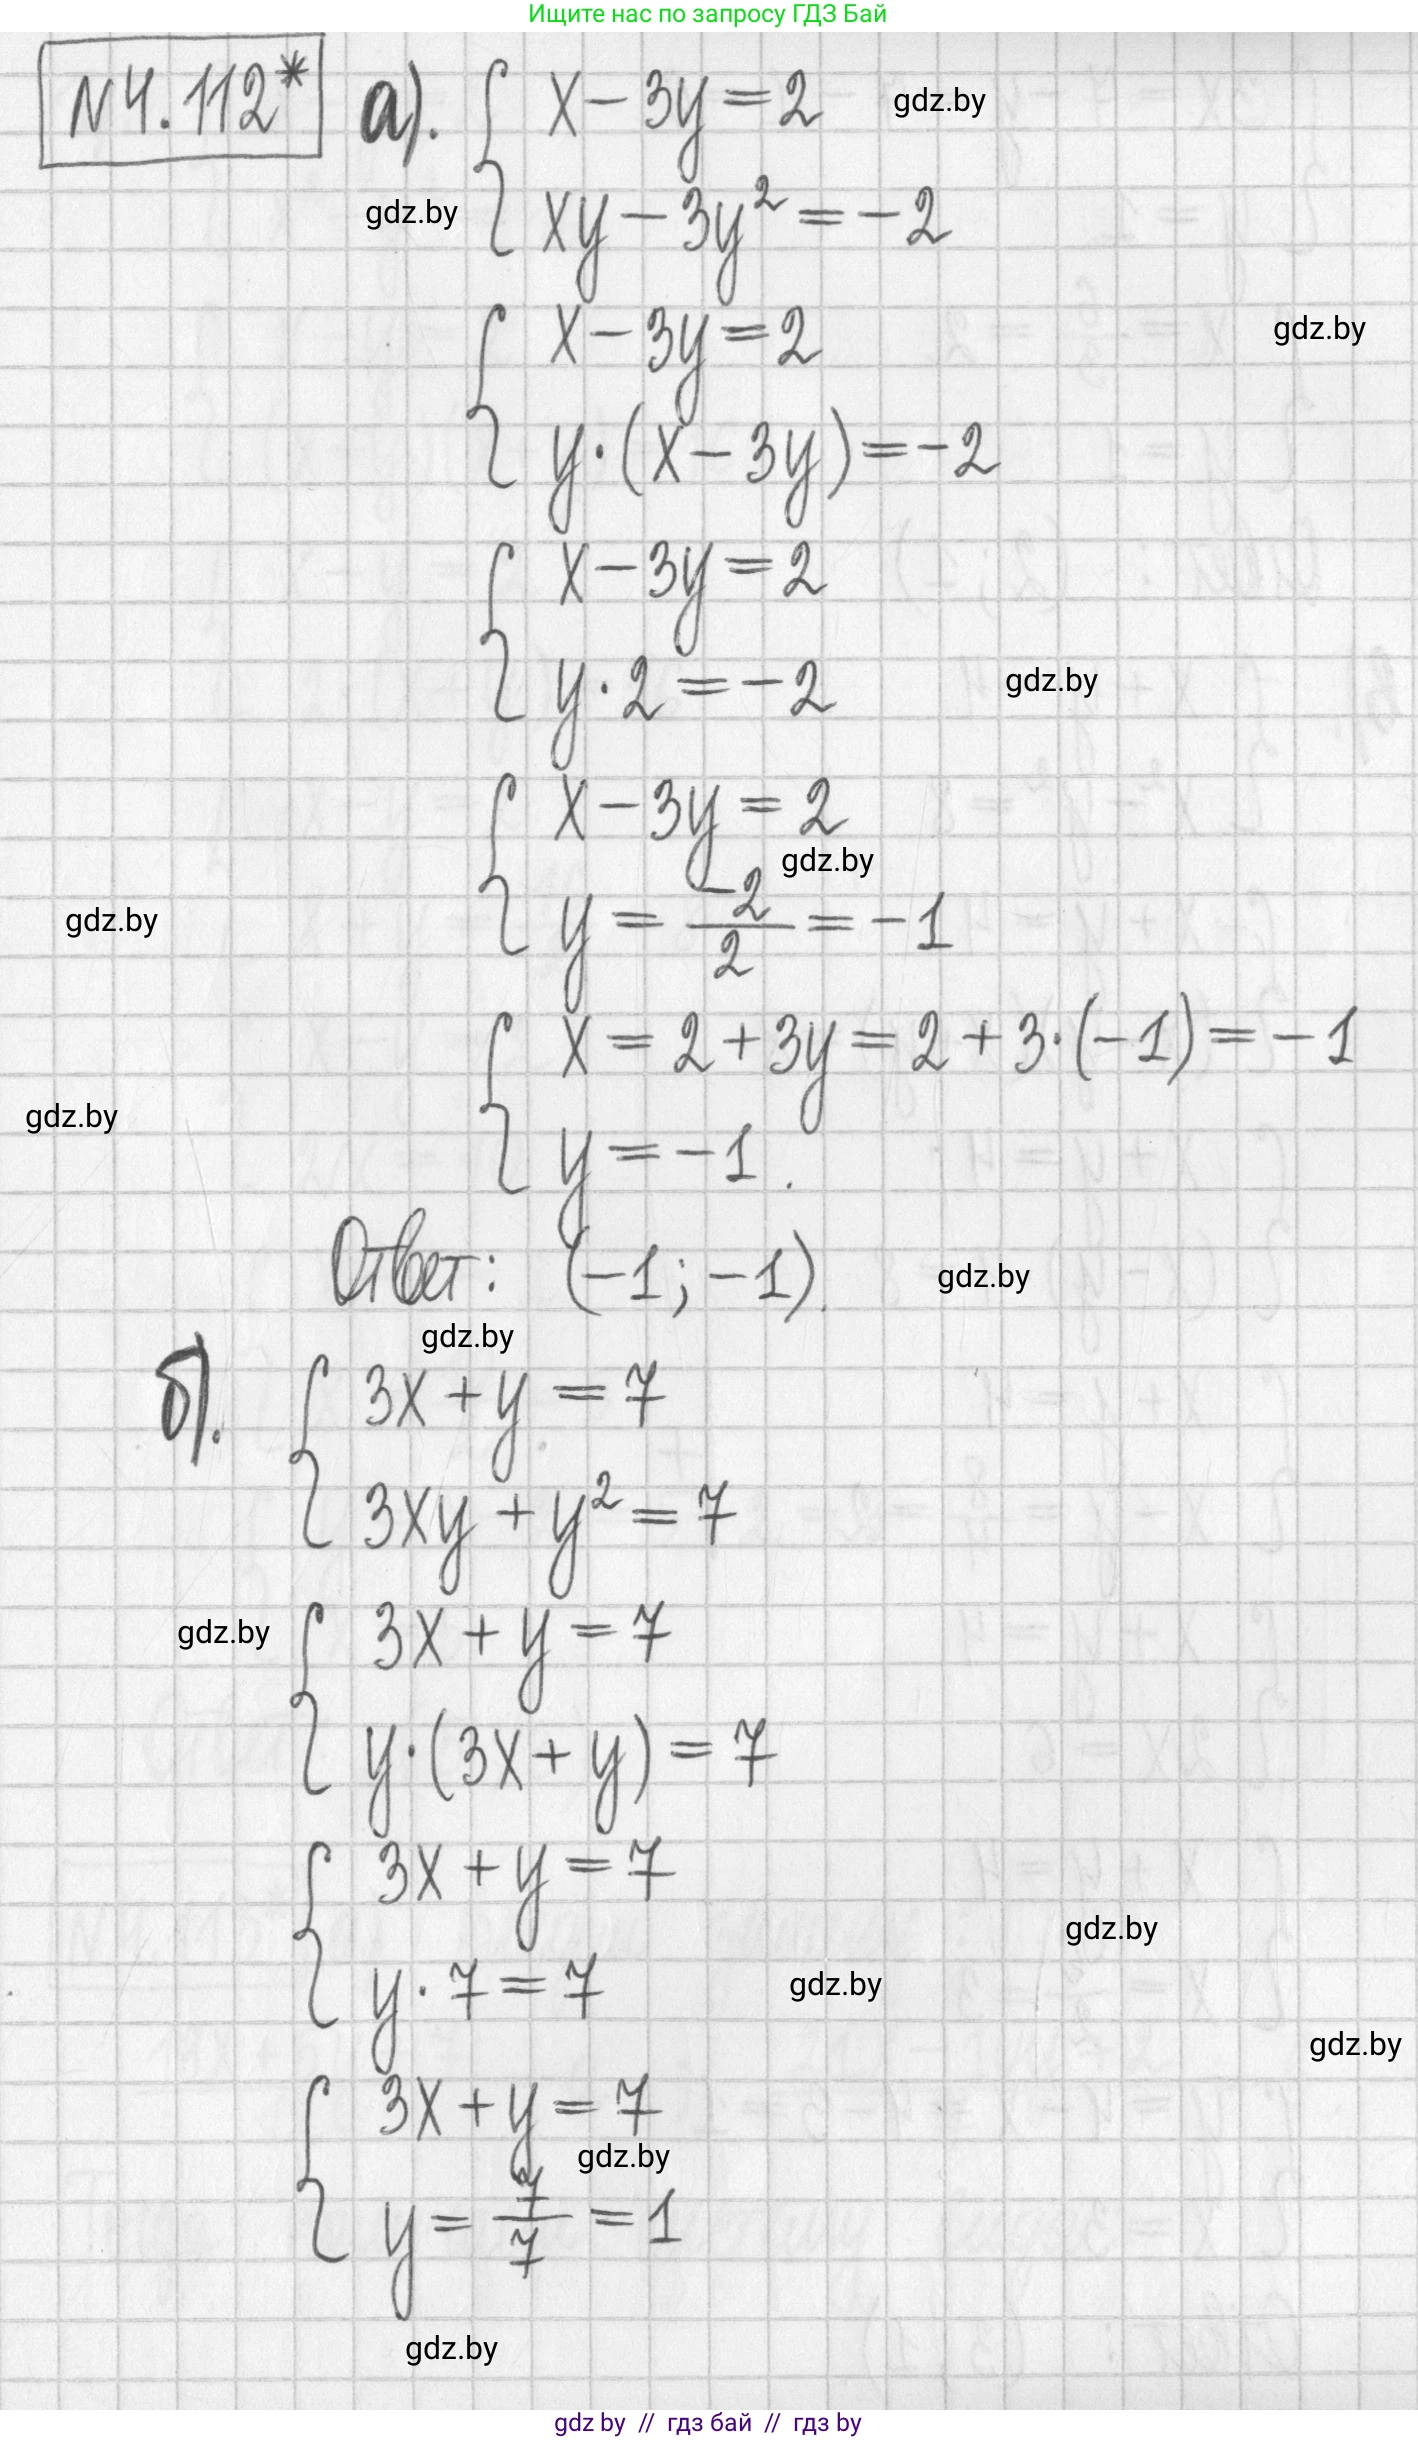 Ищите нас по запросу ГДЗ Бай
N4.112* а). { x - 3y = 2 gdz.by
gdz.by xy - 3y² = -2
{ x - 3y = 2 gdz.by
y·(x - 3y) = -2
{ x - 3y = 2
y·2 = -2 gdz.by
{ x - 3y = 2
gdz.by
gdz.by y = -2/2 = -1
{ x = 2 + 3y = 2 + 3·(-1) = -1
gdz.by
y = -1.
Ответ: (-1; -1). gdz.by
gdz.by
б). { 3x + y = 7
3xy + y² = 7
gdz.by { 3x + y = 7
y·(3x + y) = 7
{ 3x + y = 7
gdz.by
y·7 = 7 gdz.by
gdz.by
{ 3x + y = 7
gdz.by
y = 7/7 = 1
gdz.by
gdz by // гдз бай // гдз by